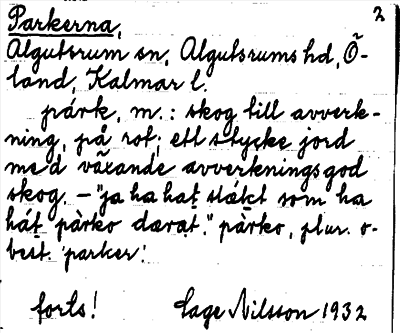 2
Parkerna,
Algutsrum sn, Algutsrums hd, Ö-
land, Kalmar l.
párk, m.: skog till avverk-
ning, på rot; ett stycke jord
med växande avverkningsgod
skog. – "ja ha hat slákt som ha
hát pàrko darat." pàrko, plur. o-
best. 'parker'.
forts! Sage Nilsson 1932